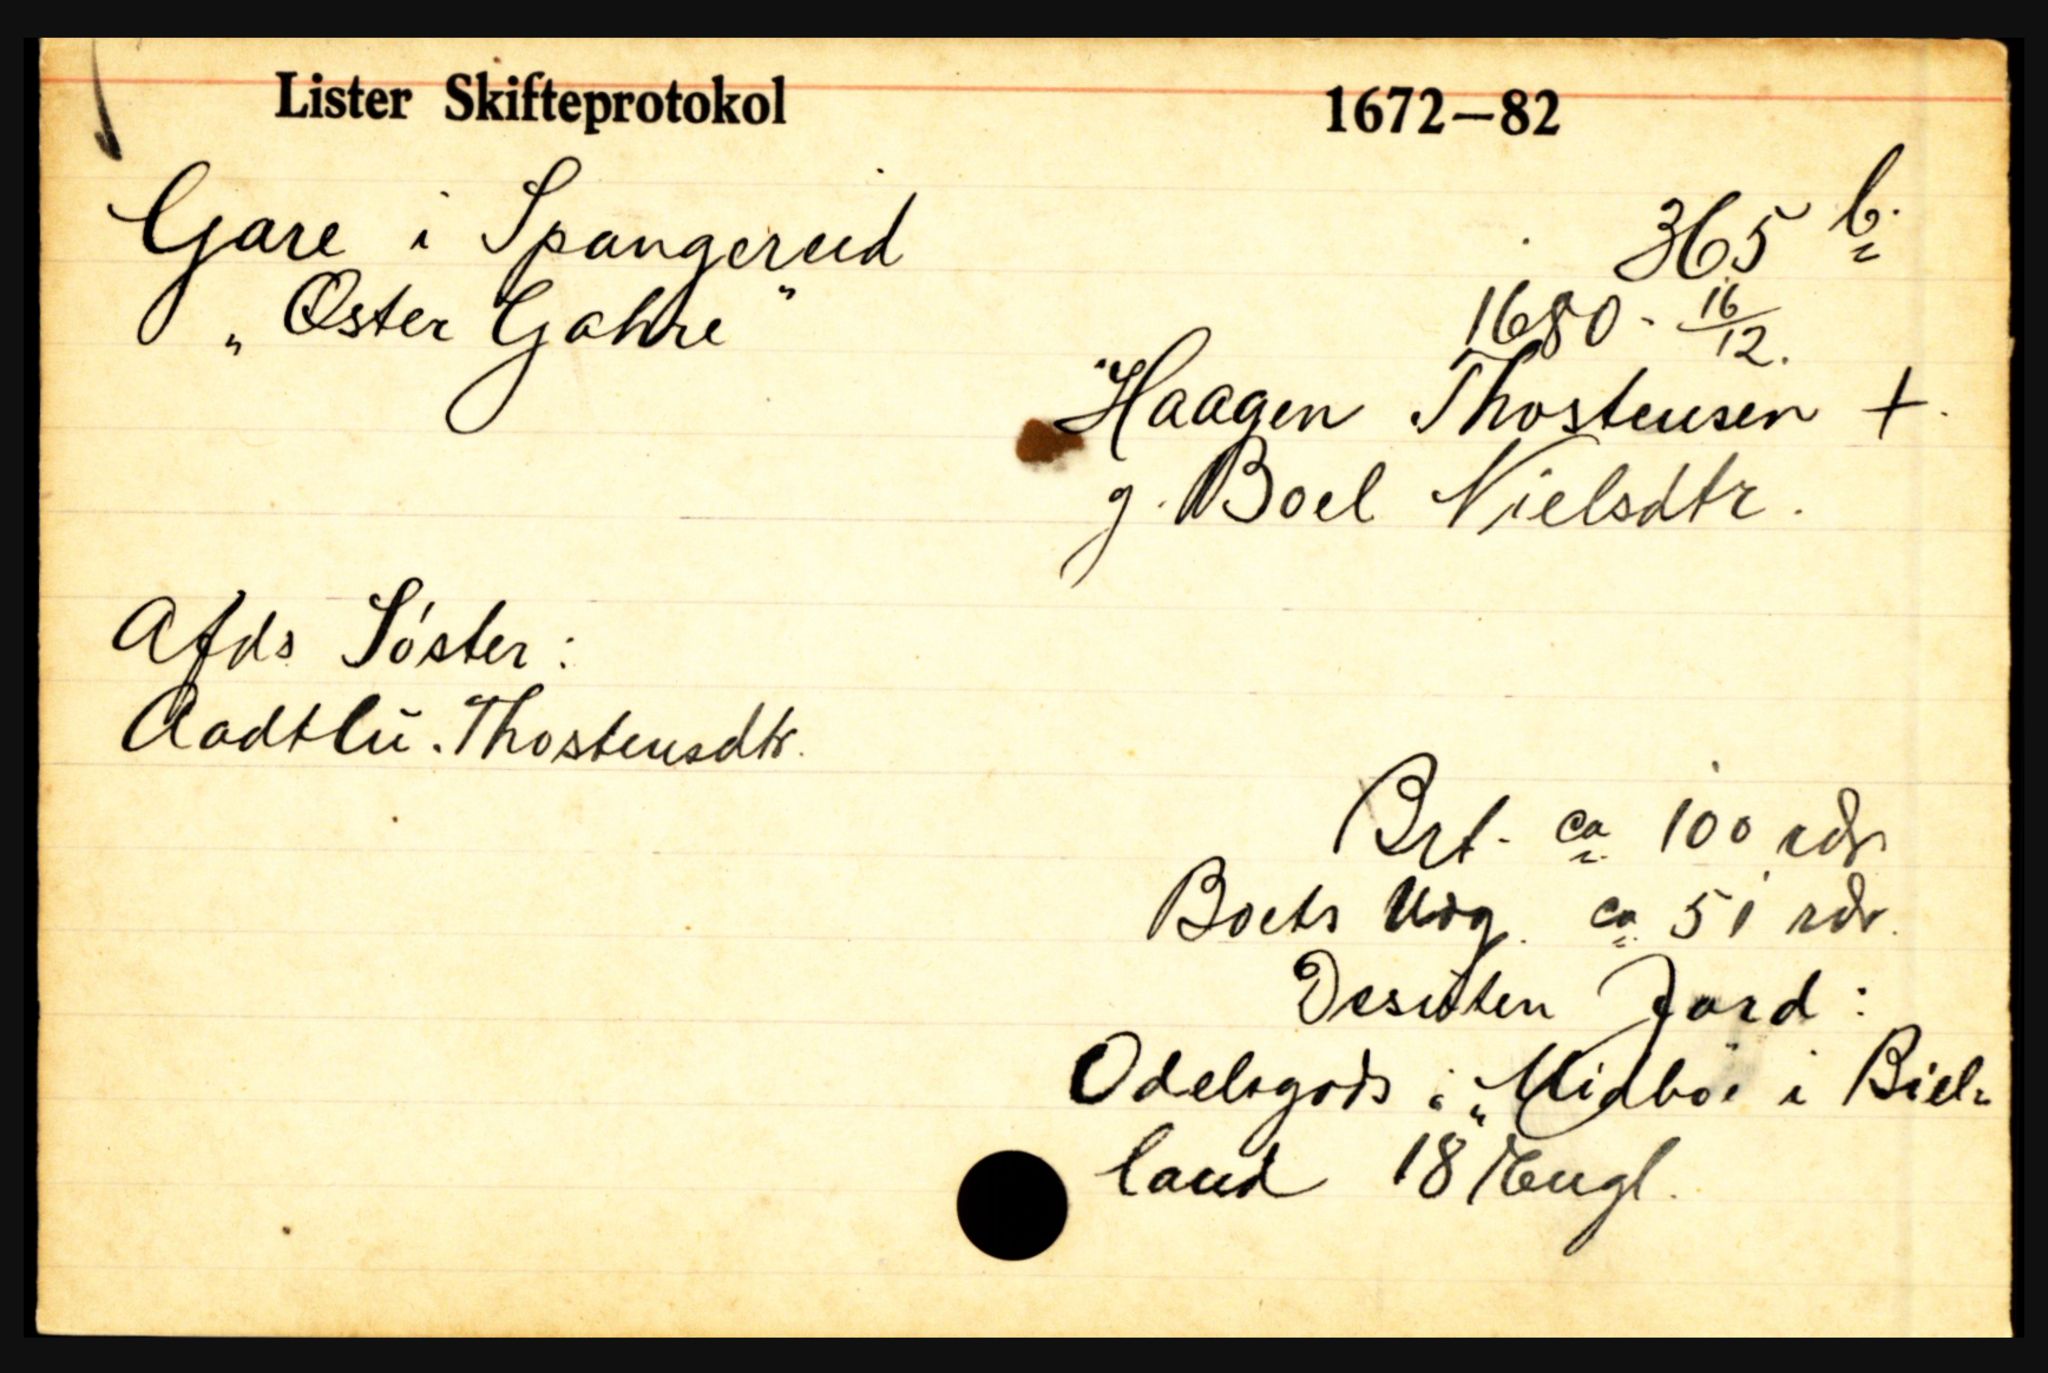 Lister Skifteprotokol 1672—82
Gare i Spangereid 365 b.
„Øster Gahre" 1680 - 16/12.
Haagen Thostensen +
g. Boel Nielsdtr.
Afds Söster:
Aadtlu. Thostensdtr.
Brt. ca 100 rdr
Boets Udg. ca 51 rdr.
Desuten Jord:
Odelsgods i „Midböe i Biel-
land 18 Engl.